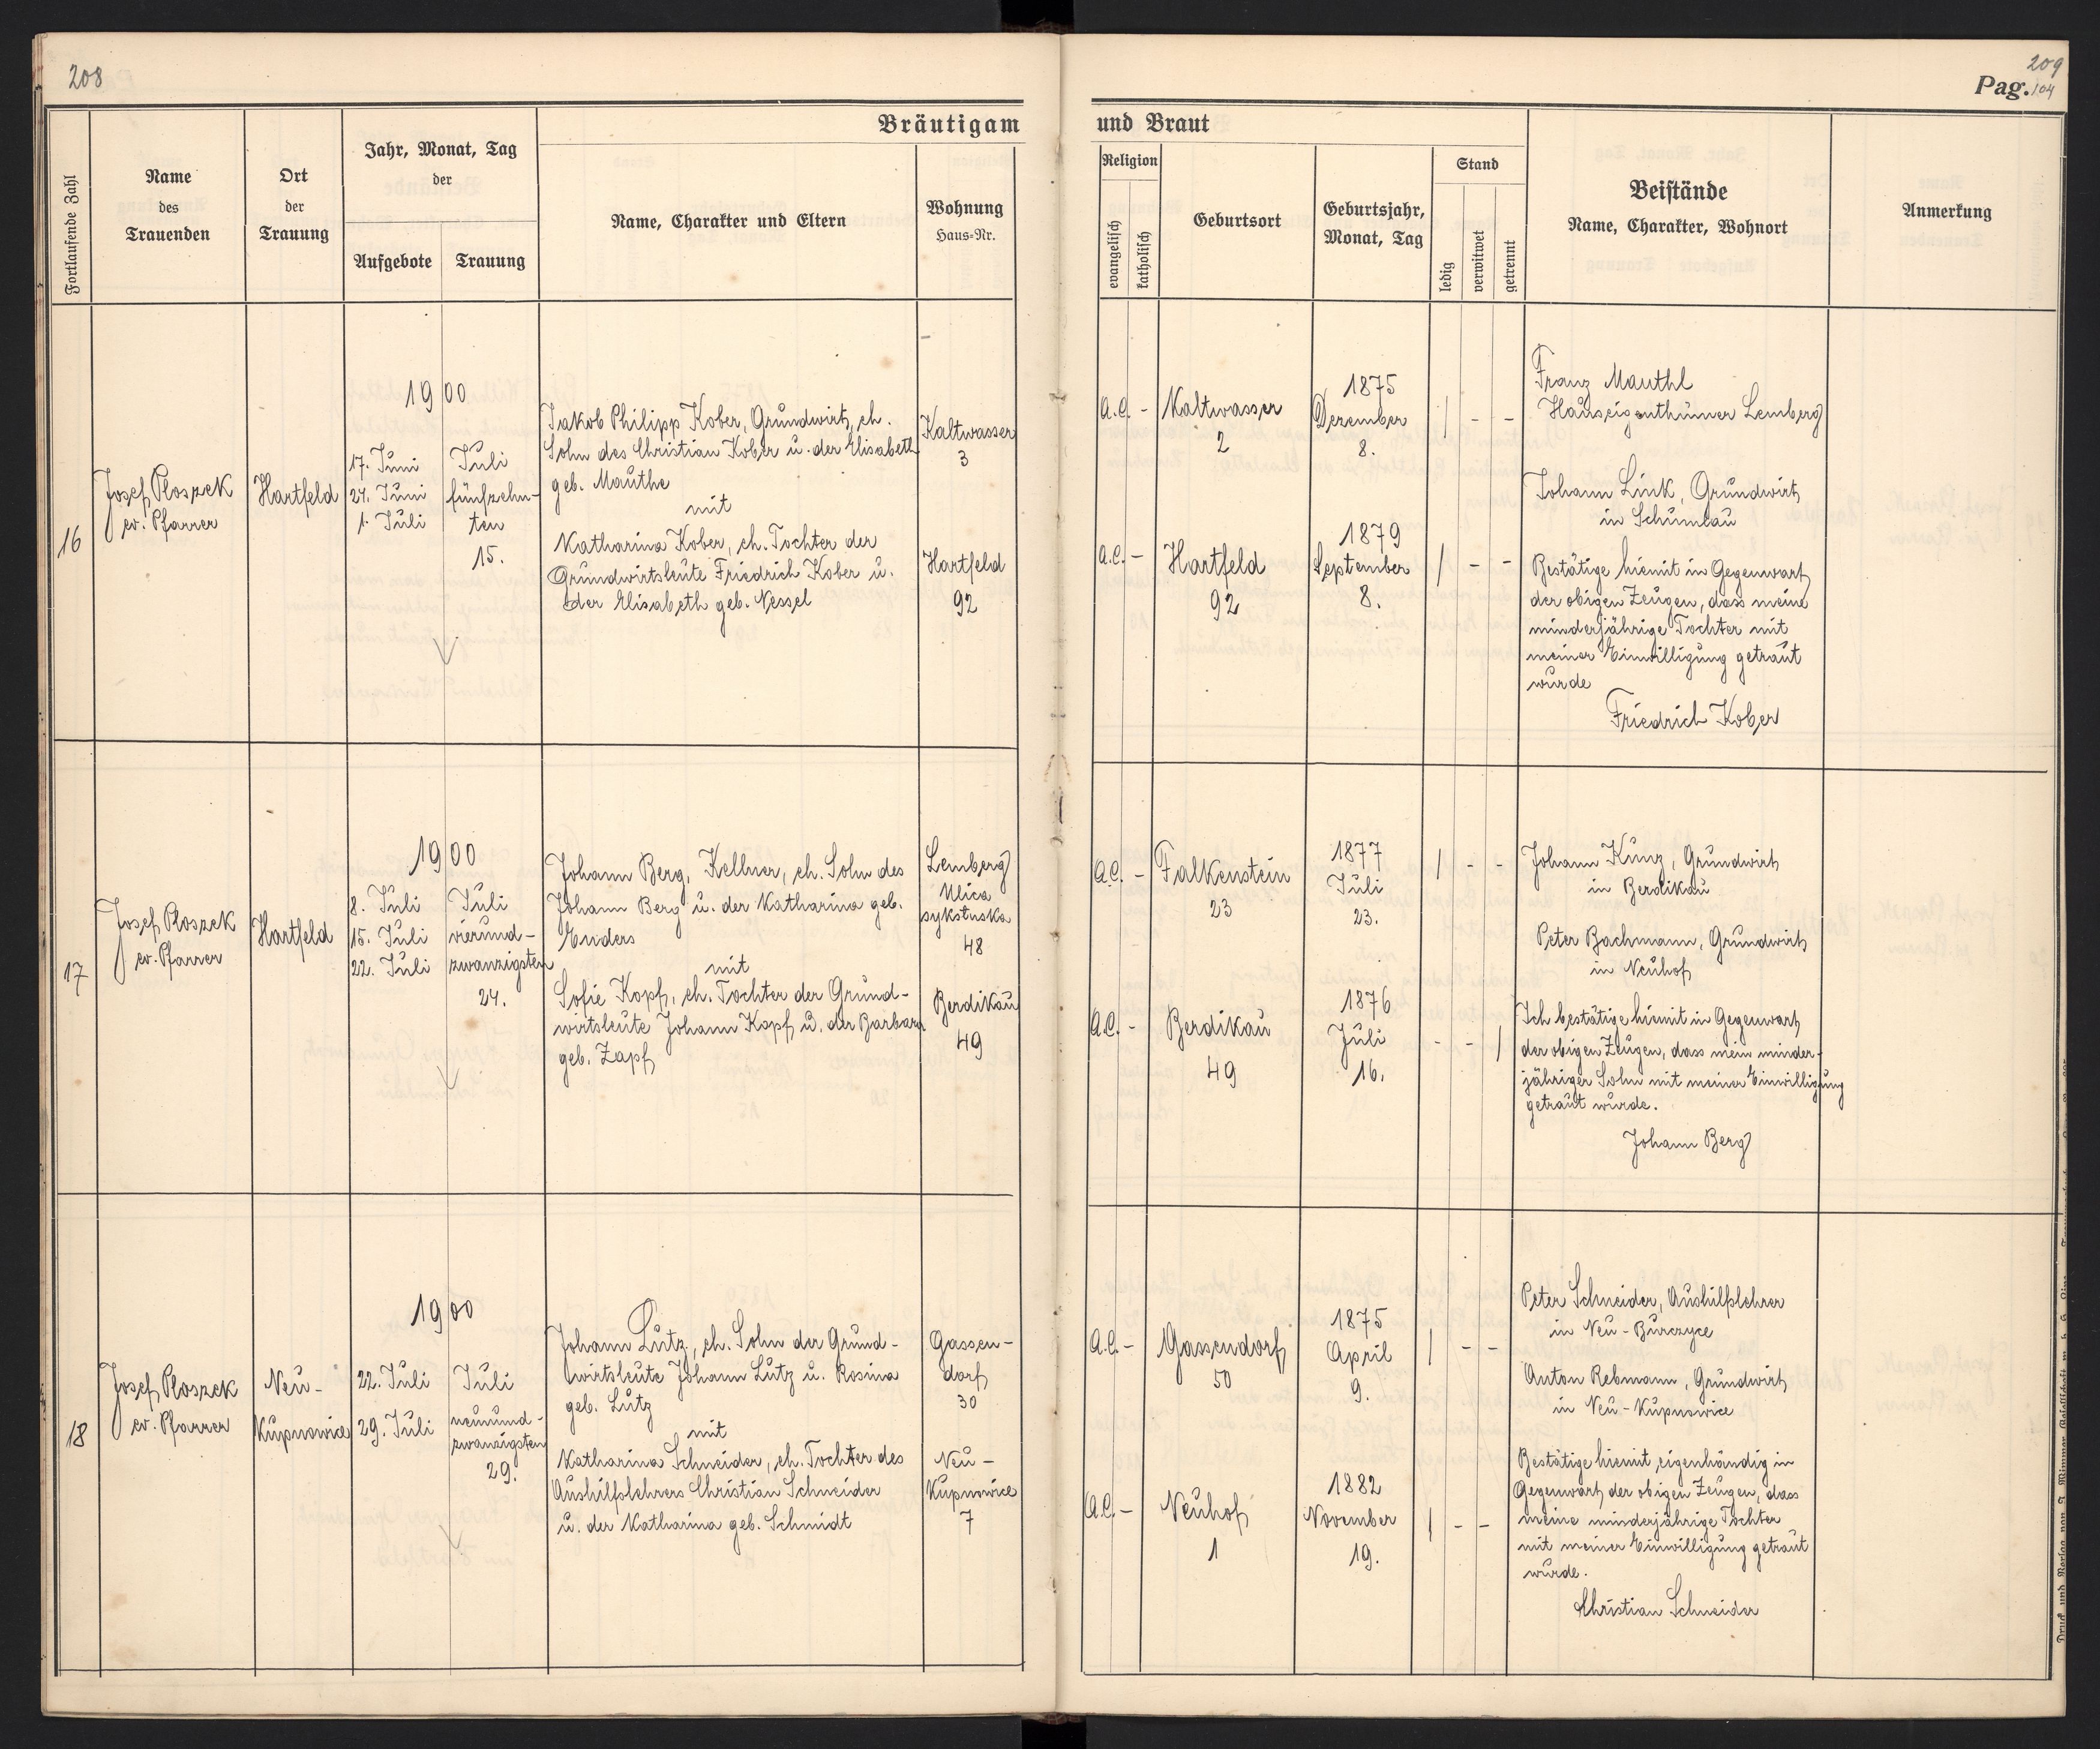 208
209
Pag. 104
Bräutigam
und Braut
Fortlaufende Zahl
Name
des
Trauenden
Ort
der
Trauung
Jahr, Monat, Tag
der
Aufgebote
Trauung
Name, Charakter und Eltern
Wohnung
Haus=Nr.
Religion
evangelisch
katholisch
Geburtsort
Geburtsjahr,
Monat, Tag
Stand
ledig
verwitwet
getrennt
Beistände
Name, Charakter, Wohnort
Anmerkung
16
Josef Ploszek
ev. Pfarrer
Hartfeld
1900
17. Juni
24. Juni
1. Juli
Juli
fünfzehn-
ten
15.
Jakob Philipp Kober, Grundwirt, eh.
Sohn des Christian Kober u. der Elisabeth
geb. Mauthe
mit
Katharina Kober, eh. Tochter der
Grundwirtsleute Friedrich Kober u.
der Elisabeth geb. Nessel
Kaltwasser
3
Hartfeld
92
A.C. -
Kaltwasser
2
1875
Dezember
8.
| - -
A.C. -
Hartfeld
92
1879
September
8.
| - -
Franz Mauthl
Hauseigenthümer Lemberg
Johann Link, Grundwirt
in Schumlau
Bestätige hiemit in Gegenwart
der obigen Zeugen, dass meine
minderjährige Tochter mit
meiner Einwilligung getraut
wurde
Friedrich Kober
17
Josef Ploszek
ev. Pfarrer
Hartfeld
1900
8. Juli
15. Juli
22. Juli
Juli
vierund-
zwanzigsten
24.
Johann Berg, Kellner, eh. Sohn des
Johann Berg u. der Katharina geb.
Enders
mit
Sofie Kopf, eh. Tochter der Grund-
wirtsleute Johann Kopf u. der Barbara
geb. Zapf
Lemberg
Ulica
sykstuska
48
Berdikau
49
A.C. -
Falkenstein
23
1877
Juli
23.
| - -
A.C. -
Berdikau
49
1876
Juli
16.
- - |
Johann Kunz, Grundwirt
in Berdikau
Peter Bachmann, Grundwirt
in Neuhof
Ich bestätige hiemit in Gegenwart
der obigen Zeugen, dass mein minder-
jähriger Sohn mit meiner Einwilligung
getraut wurde.
Johann Berg
18
Josef Ploszek
ev. Pfarrer
Neu-
Kupnowice
1900
22. Juli
29. Juli
Juli
neunund-
zwanzigsten
29.
Johann Lutz, eh. Sohn der Grund-
wirtsleute Johann Lutz u. Rosina
geb. Lutz
mit
Katharina Schneider, eh. Tochter des
Aushilfslehrers Christian Schneider
u. der Katharina geb. Schmidt
Gassen-
dorf
30
Neu-
Kupnowice
7
A.C. -
Gassendorf
50
1875
April
9.
| - -
A.C. -
Neuhof
1
1882
November
19.
| - -
Peter Schneider, Aushilfslehrer
in Neu-Burczyce
Anton Rebmann, Grundwirt
in Neu-Kupnowice
Bestätige hiemit eigenhändig in
Gegenwart der obigen Zeugen, dass
meine minderjährige Tochter
mit meiner Einwilligung getraut
wurde.
Christian Schneider
Druck und Verlag von